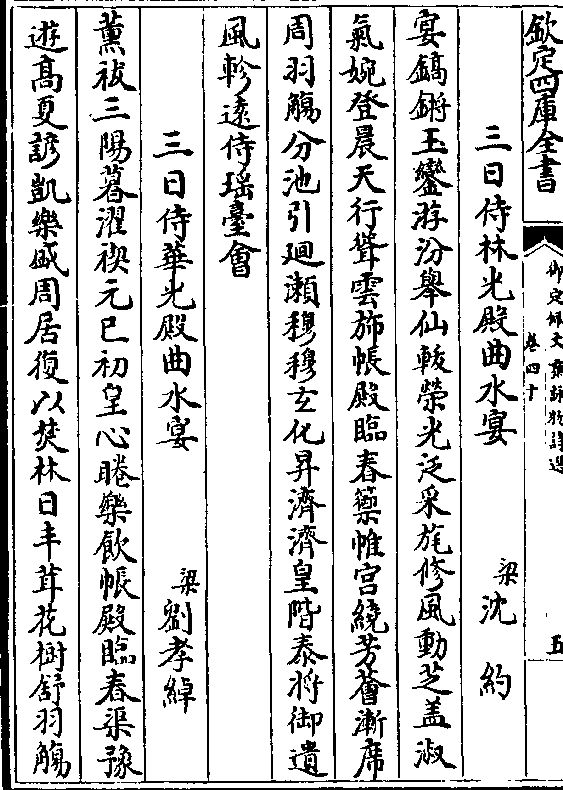 欽定四庫全書
御定佩文齋詠物詩選
卷四十
五
三日侍林光殿曲水宴 梁沈約
宴鎬鏘玉鑾游汾舉仙軷榮光泛采旄修風動芝盖淑
氣婉登晨天行聳雲斾帳殿臨春籞帷宫繞芳薈漸席
周羽觴分池引廻瀬穆穆玄化昇濟濟皇階泰将御遺
風軫遠侍瑶臺會
三日侍華光殿曲水宴 梁劉孝綽
薫祓三陽暮濯禊元巳初皇心睠樂飲帳殿臨春渠豫
遊髙夏諺凱樂盛周居復以焚林日丰茸花樹舒羽觴